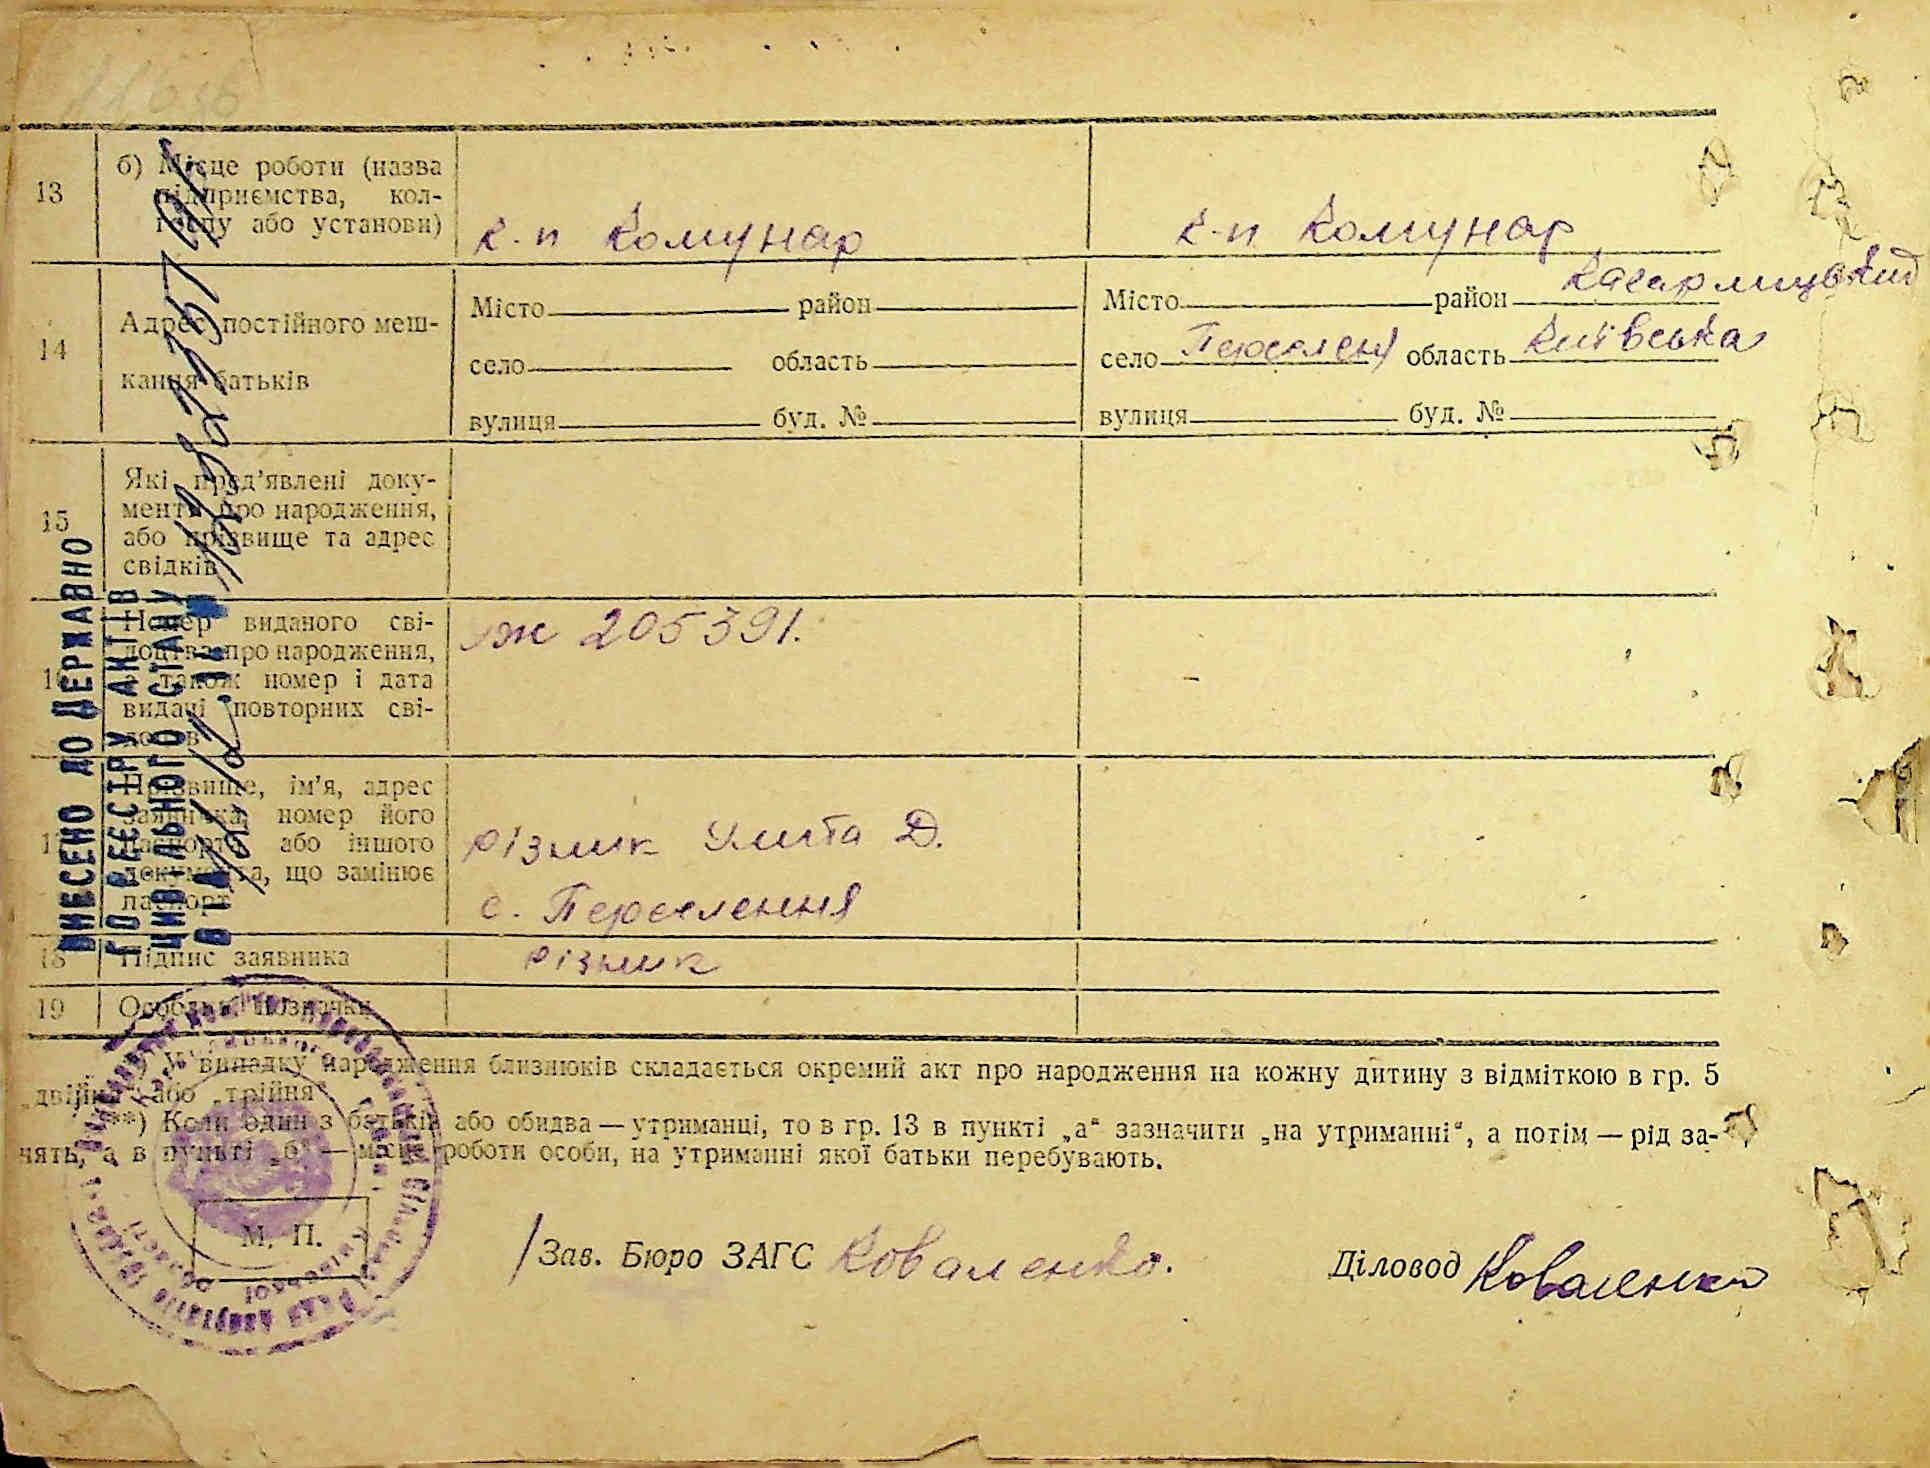 13
б) Місце роботи (назва
підприємства, кол-
госпу або установи)
к-п Комунар
к-п Комунар
14
Адрес постійного меш-
кання батьків
Місто район
село область
вулиця буд. №
Місто район Кагарлицький
село Переселення область Київська
вулиця буд. №
15
Які пред'явлені доку-
менти про народження,
або прізвище та адрес
свідків
Номер виданого сві-
доцтва про народження,
а також номер і дата
видачі повторних сві-
доцтв
ж 205391.
17
Прізвище, ім'я, адрес
заявника, номер його
паспорта або іншого
документа, що замінює
паспорт
Різник Улита Д.
с. Переселення
18
Підпис заявника
Різник
19
Особливі позначки
*) У випадку народження близнюків складається окремий акт про народження на кожну дитину з відміткою в гр. 5
„двійня“ або „трійня“
**) Коли один з батьків або обидва — утриманці, то в гр. 13 в пункті „а“ зазначити „на утриманні“, а потім — рід за-
нять, а в пункті „б“ — місце роботи особи, на утриманні якої батьки перебувають.
М. П.
Зав. Бюро ЗАГС Коваленко.
Діловод Коваленко
ВНЕСЕНО ДО ДЕРЖАВНО
ГО РЕЄСТРУ АКТІВ
ЦИВІЛЬНОГО СТАНУ